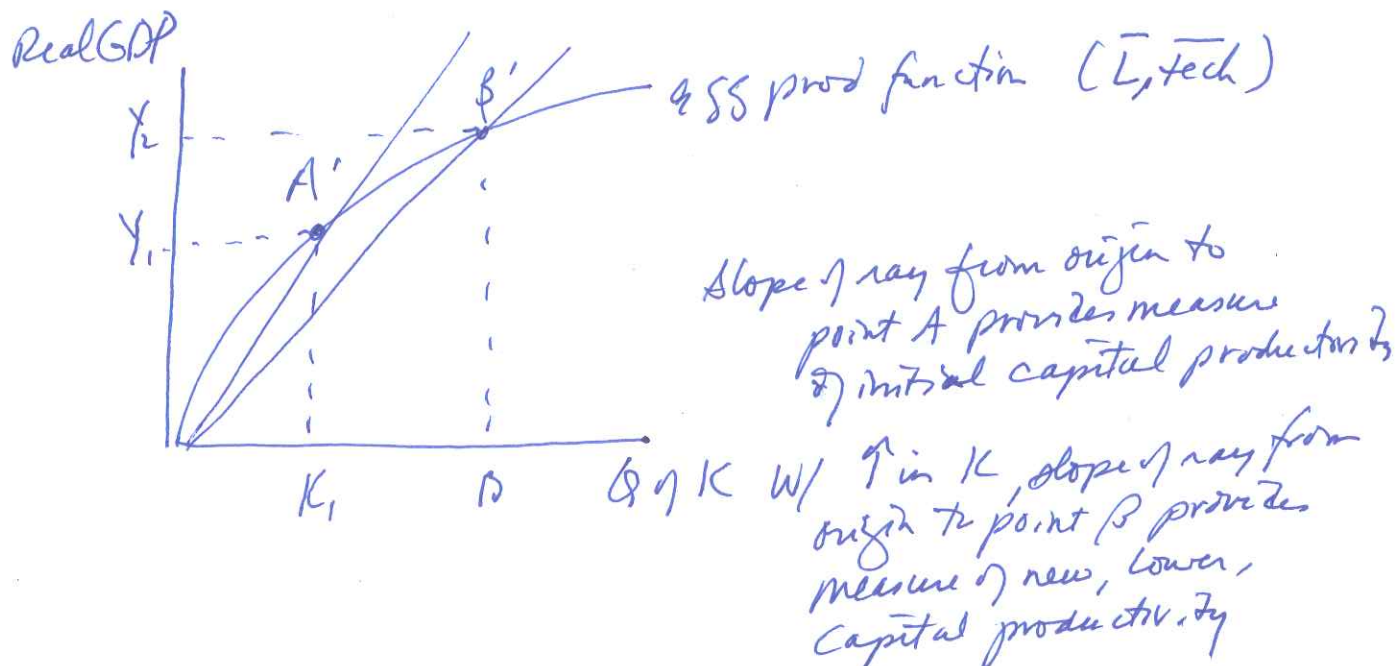 Real GDP
agg prod function (L̅, tech̅)
Y₂
B'
A'
Y₁
Slope of ray from origin to
point A provides measure
of initial capital productivity
K₁
B
Q of K
W/ ↑ in K, slope of ray from
origin to point B provides
measure of new, lower,
capital productivity